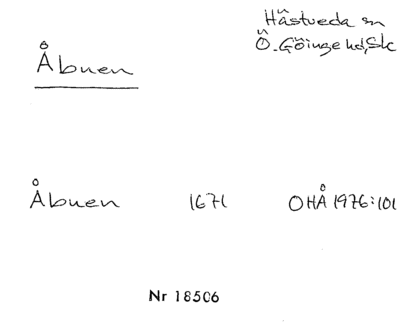 Hästveda sn
Ö. Göinge hd, Sk
Åbuen
Åbuen 1671 OHÅ 1976:101
Nr 18506